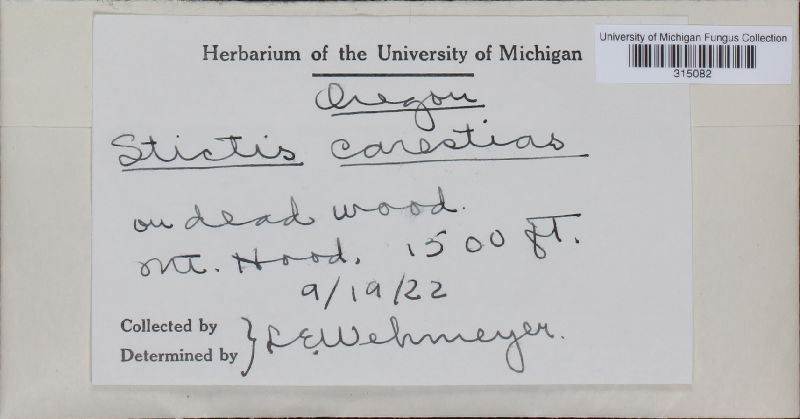 University of Michigan Fungus Collection
315082
Herbarium of the University of Michigan
Oregon
Stictis carestias
on dead wood.
Mt. Hood. 1500 ft.
9/19/22
Collected by
Determined by } L E Wehmeyer.